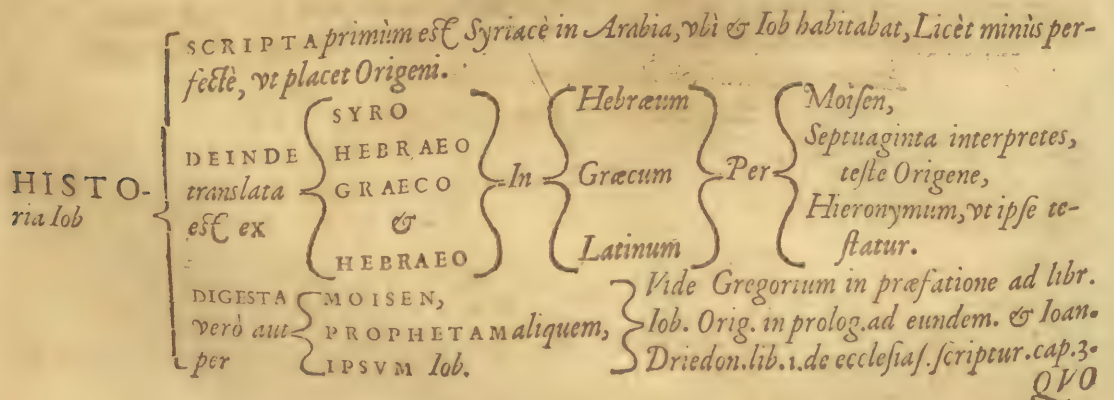 HISTO-
ria Iob
SCRIPTA primùm est Syriacè in Arabia, vbi & Iob habitabat, Licèt minùs per-
fectè, vt placet Origeni.
DEINDE
translata
est ex
SYRO
HEBRAEO
GRAECO
&
HEBRAEO
In
Hebræum
Græcum
Latinum
Per
Moisen,
Septuaginta interpretes,
teste Origene,
Hieronymum, vt ipse te-
statur.
DIGESTA
verò aut
per
MOISEN,
PROPHETAM aliquem,
IPSVM Iob.
Vide Gregorium in præfatione ad libr.
Iob. Orig. in prolog. ad eundem. & Ioan.
Driedon. lib. 1. de ecclesias. scriptur. cap. 3.
QVO